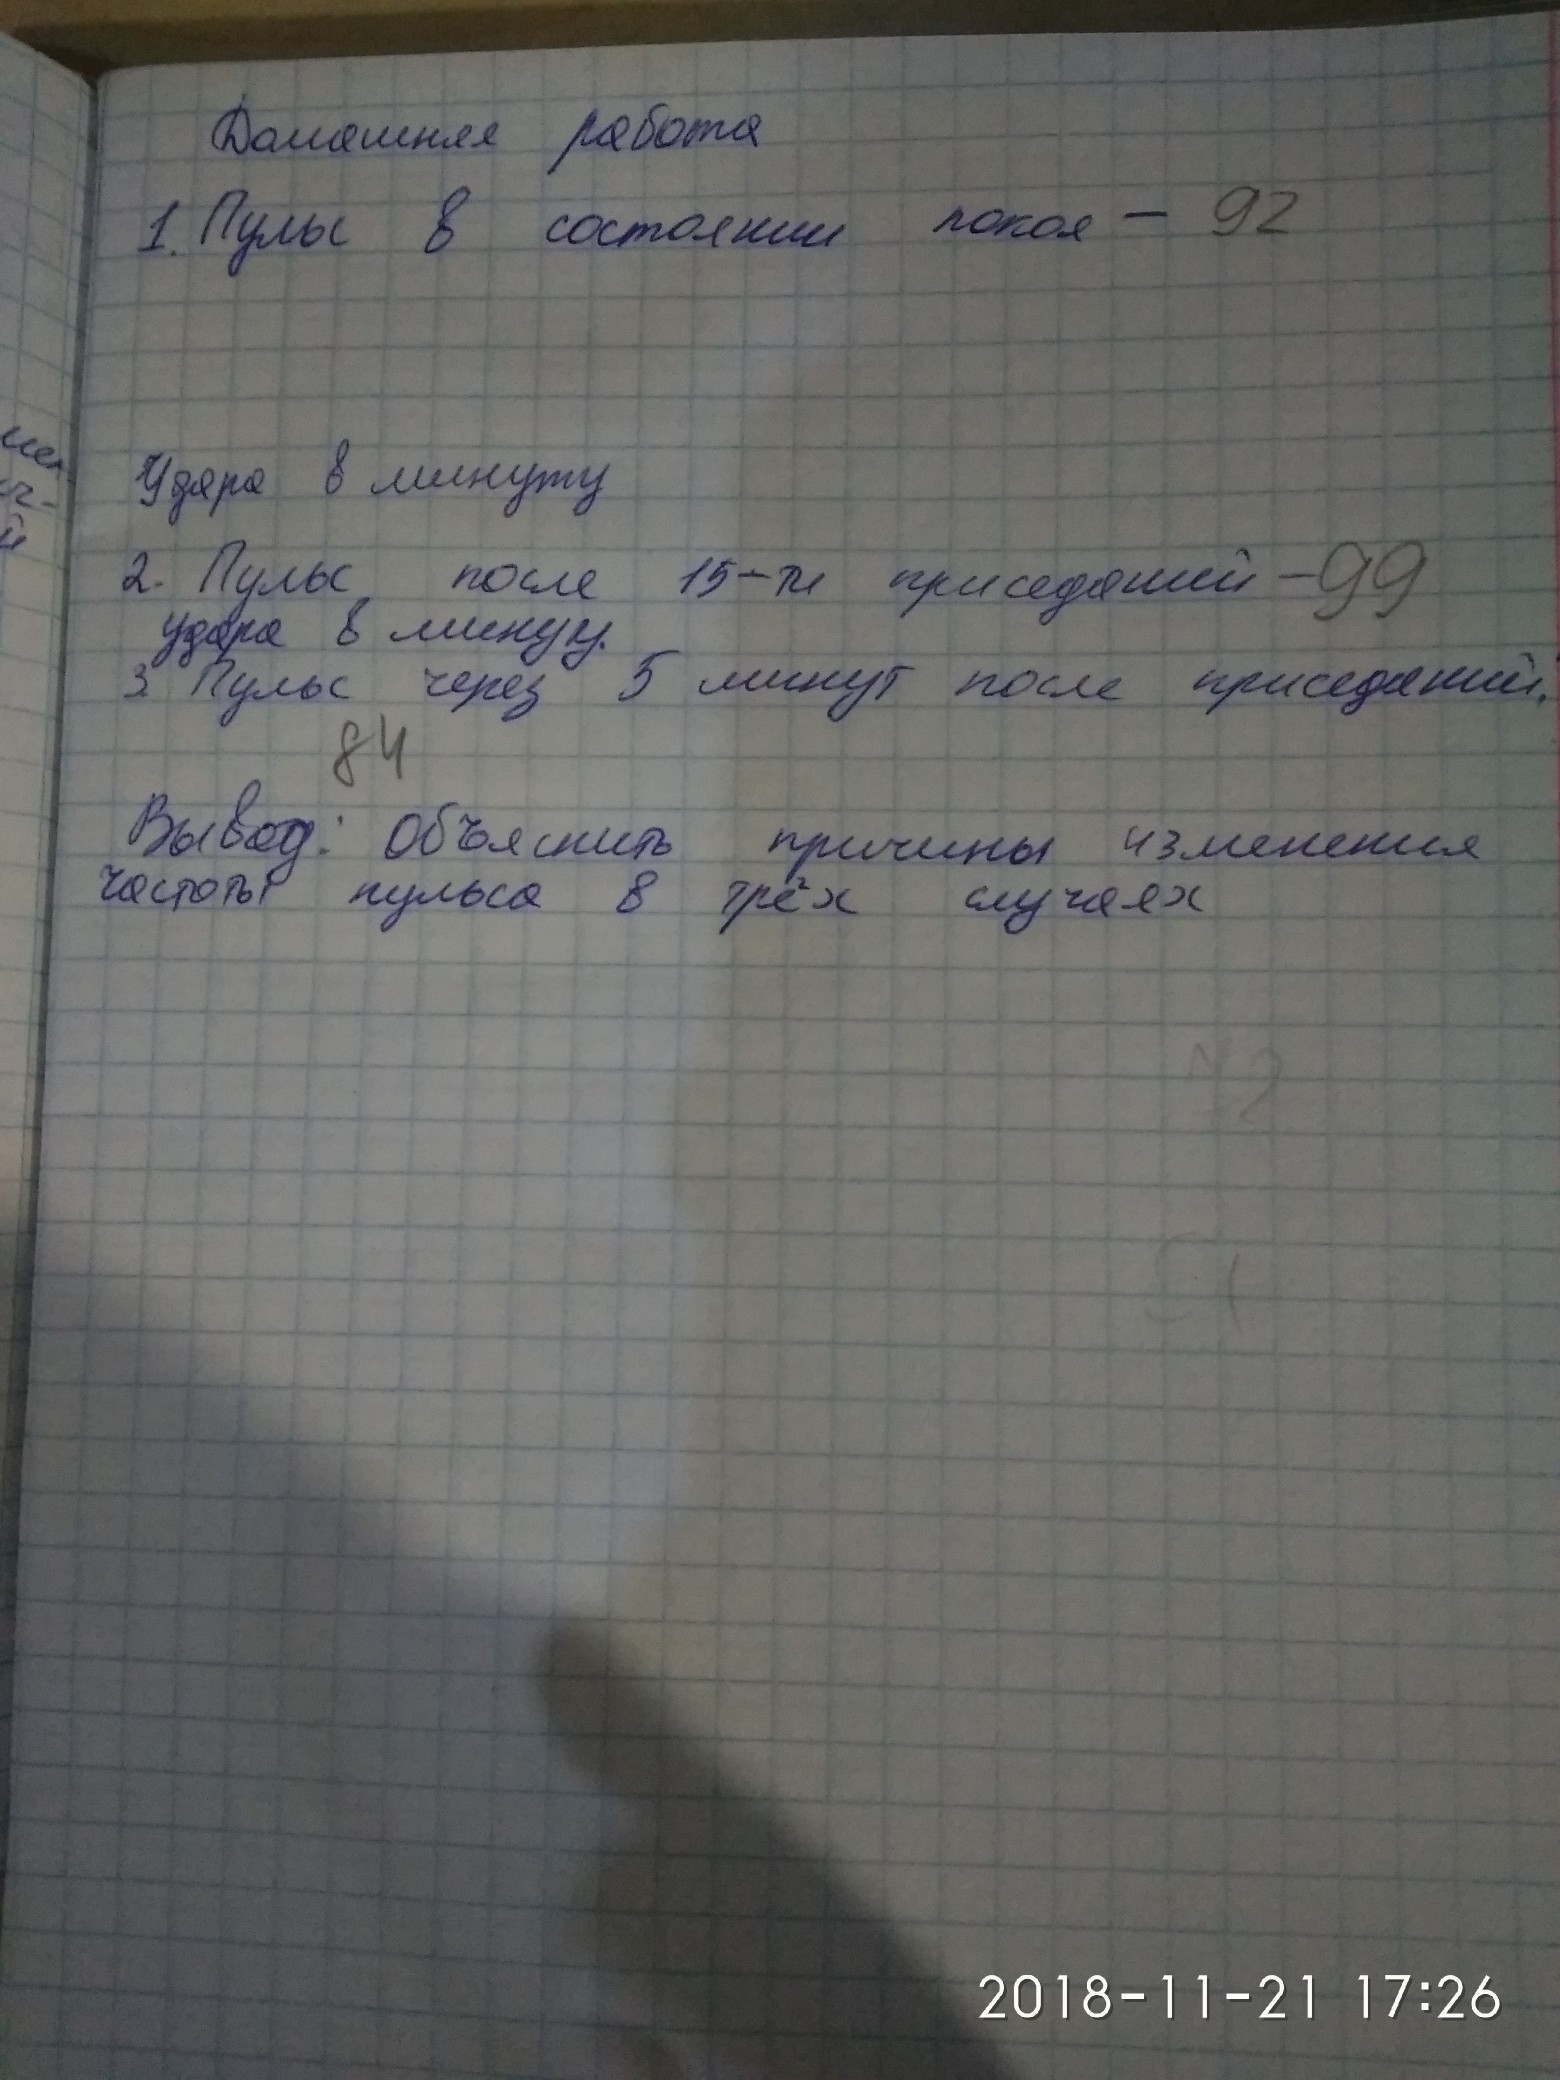 Домашняя работа
1. Пульс в состоянии покоя – 92
Удара в минуту
2. Пульс после 15-ти приседаний – 99
удара в минуу.
3. Пульс через 5 минут после приседаний.
84
Вывод: Объяснить причины изменения
частоты пульса в трёх случаях
2018-11-21 17:26